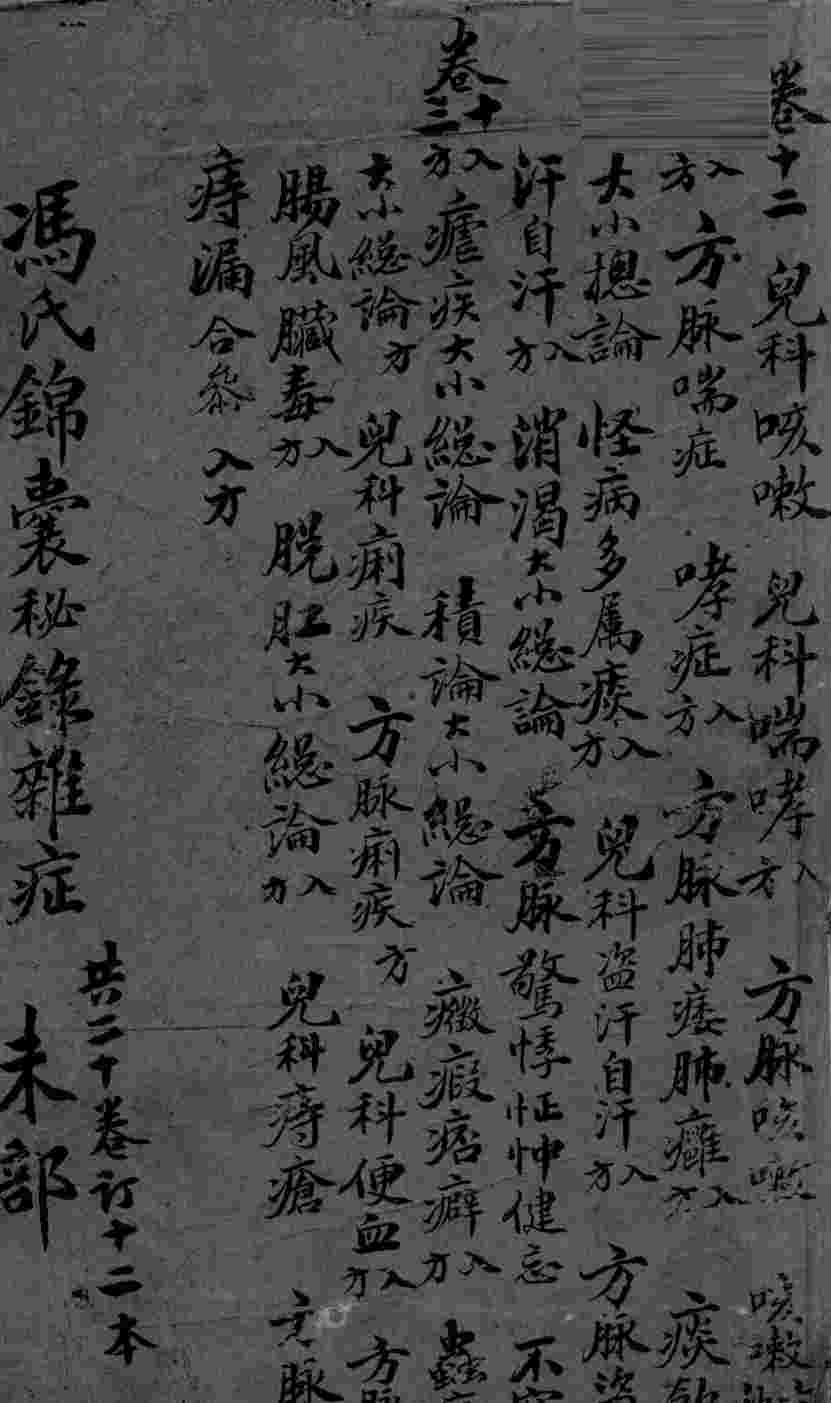 卷十二 兒科咳嗽 兒科喘哮入方 方脉咳嗽 咳嗽
入方 方脉喘症 哮症入方 方脉肺痿肺癰入方 痰飲
大小搃論 怪病多属痰入方 兒科盗汗自汗入方 方脉盗
汗自汗入方 消渴大小總論 方脉驚悸怔忡健忘 不
卷十三 入方 瘧疾大小總論 積論大小總論 癥瘕痞癖入方 蟲
大小總論方 兒科痢疾 方脉痢疾方 兒科便血入方 方脉
腸風臟毒入方 脱肛大小總論入方 兒科痔瘡 方脉
痔漏合參 入方
共二十卷訂十二本
馮氏錦囊秘錄雜症 未部